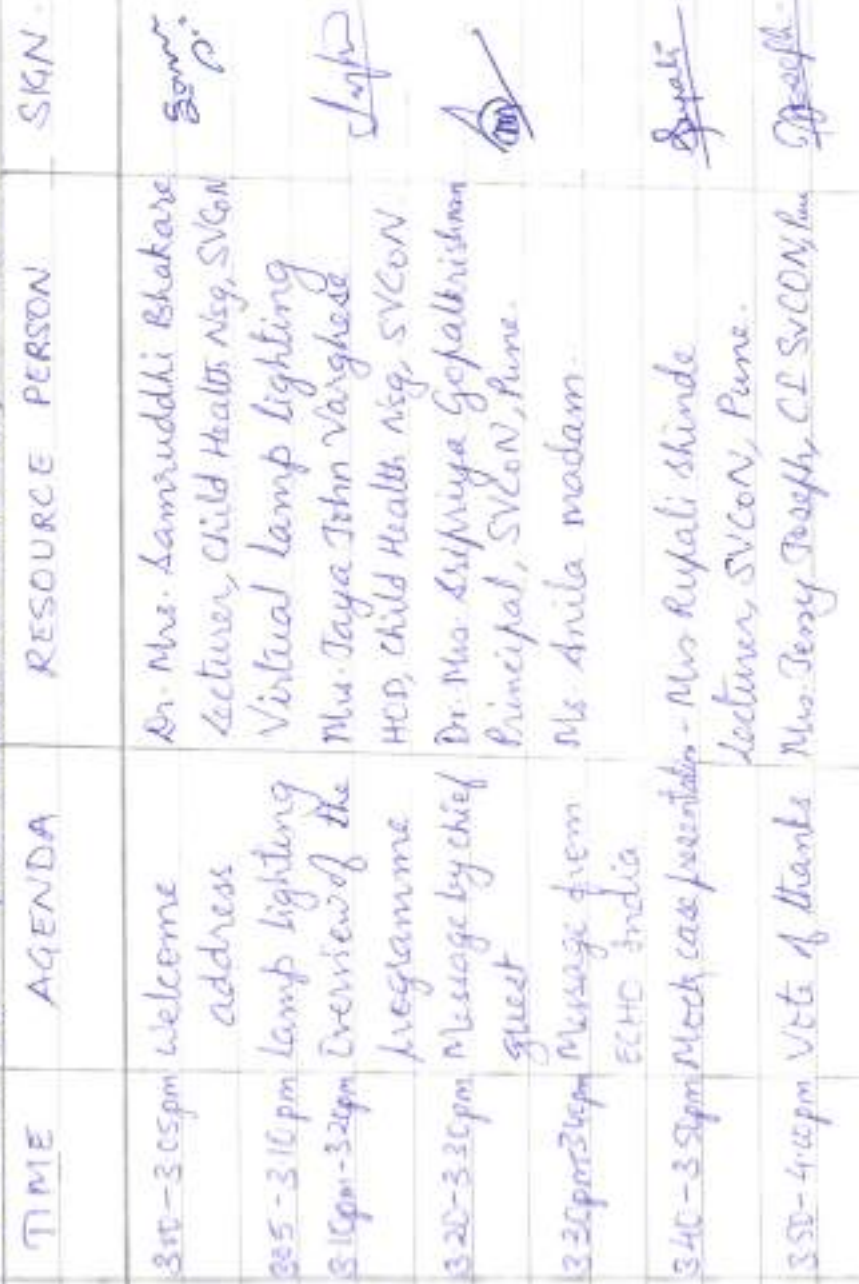 TIME AGENDA RESOURCE PERSON SIGN.
3.00-3.05pm Welcome Dr. Mrs. Samruddhi Bhakare
address Lecturer, Child Health Nsg, SVCoN
3.05-3.10pm Lamp lighting Virtual lamp lighting
3.10pm-3.20pm Overview of the Mrs. Jaya John Varghese
programme HOD, Child Health Nsg, SVCoN
3.20-3.30pm Message by chief Dr. Mrs. Sripriya Gopalkrishnan
guest Principal, SVCoN, Pune.
3.30pm-3.40pm Message from Ms Anila madam.
ECHO India
3.40-3.50pm Mock case presentation - Mrs Rupali Shinde
Lecturer, SVCoN, Pune.
3.50-4.00pm Vote of thanks Mrs. Jessy Joseph, CI SVCON, Pune